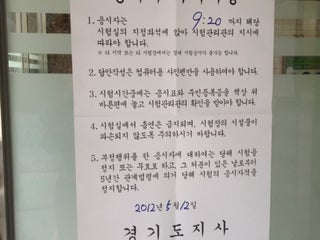 1. 응시자는 9:20 까지 해당
시험실의 지정좌석에 앉아 시험관리관의 지시에
따라야 합니다.
2. 답안작성은 컴퓨터용 사인펜만을 사용하여야 합니다.
3. 시험시간중에는 응시표와 주민등록증을 책상 위
바른편에 놓고 시험관리관의 확인을 받아야 합니다.
4. 시험실에서 흡연은 금지되며, 시험장의 시설물이
파손되지 않도록 주의하시기 바랍니다.
5. 부정행위를 한 응시자에 대하여는 당해 시험을
정지 또는 무효로 하고, 그 처분이 있은 날로부터
5년간 관계법령에 의거 당해 시험의 응시자격을
정지합니다.
2012년 5월 12일
경기도지사